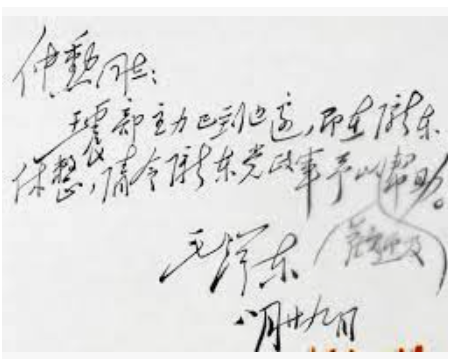 仲勲同志:
王震部主力已到边区,即在陇东
休整,请令陇东党政军予以帮助。
毛泽东
八月廿九日